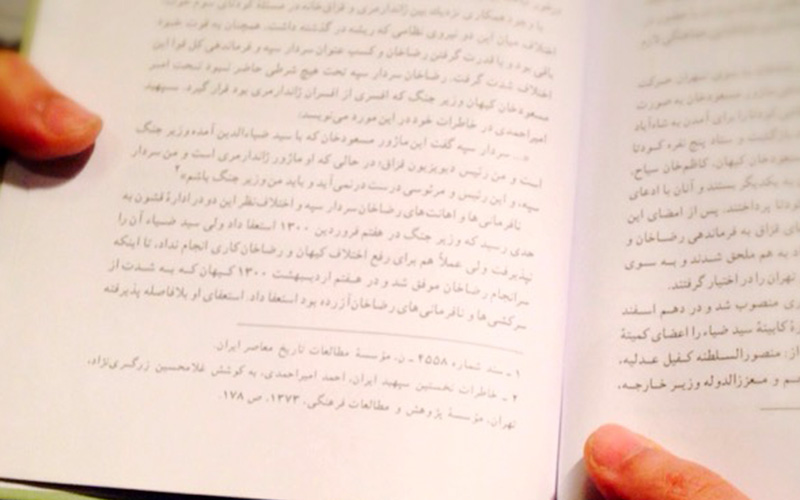 با وجود همکاری نزدیک بین ژاندارمری و قزاق‌خانه در مسئلهٔ کودتای سوم حوت،
اختلاف میان این دو نیروی نظامی که ریشه در گذشته داشت، همچنان به قوت خود
باقی بود و با قدرت گرفتن رضاخان و کسب عنوان سردار سپه و فرماندهی کل قوا این
اختلاف شدت گرفت. رضاخان سردار سپه تحت هیچ شرطی حاضر نبود تحت امر
مسعودخان کیهان وزیر جنگ که افسری از افسران ژاندارمری بود قرار گیرد. سپهبد
امیراحمدی در خاطرات خود در این مورد می‌نویسد:
«... سردار سپه گفت این ماژور مسعودخان که با سید ضیاءالدین آمده وزیر جنگ
است و من رئیس دیویزیون قزاق، در حالی که او ماژور ژاندارمری است و من سردار
سپه، و این رئیس و مرئوسی درست درنمی‌آید و باید من وزیر جنگ باشم»۲
نافرمانی‌ها و اهانت‌های رضاخان سردار سپه و اختلاف‌نظر این دو در ادارهٔ قشون به
حدی رسید که وزیر جنگ در هفتم فروردین ۱۳۰۰ استعفا داد ولی سید ضیاء آن را
نپذیرفت ولی عملاً هم برای رفع اختلاف کیهان و رضاخان کاری انجام نداد، تا اینکه
سرانجام رضاخان موفق شد و در هفتم اردیبهشت ۱۳۰۰ کیهان که به شدت از
سرکشی‌ها و نافرمانی‌های رضاخان آزرده بود استعفا داد. استعفای او بلافاصله پذیرفته
۱ ـ سند شماره ۲۵۵۸ ـ ن، مؤسسهٔ مطالعات تاریخ معاصر ایران.
۲ ـ خاطرات نخستین سپهبد ایران، احمد امیراحمدی، به کوشش غلامحسین زرگری‌نژاد،
تهران، مؤسسهٔ پژوهش و مطالعات فرهنگی، ۱۳۷۳، ص ۱۷۸.
سوی تهران حرکت
مسعودخان به صورت
برای آمدن به شاه‌آباد
بازگشت و ستاد پنج نفره کودتا
مسعودخان کیهان، کاظم‌خان سیاح،
به یکدیگر بستند و آنان با ادعای
پرداختند. پس از امضای این
قزاق به فرماندهی رضاخان و
به هم ملحق شدند و به سوی
تهران را در اختیار گرفتند.
منصوب شد و در دهم اسفند
کابینهٔ سید ضیاء را اعضای کمیتهٔ
از: منصورالسلطنه کفیل عدلیه،
و معززالدوله وزیر خارجه،